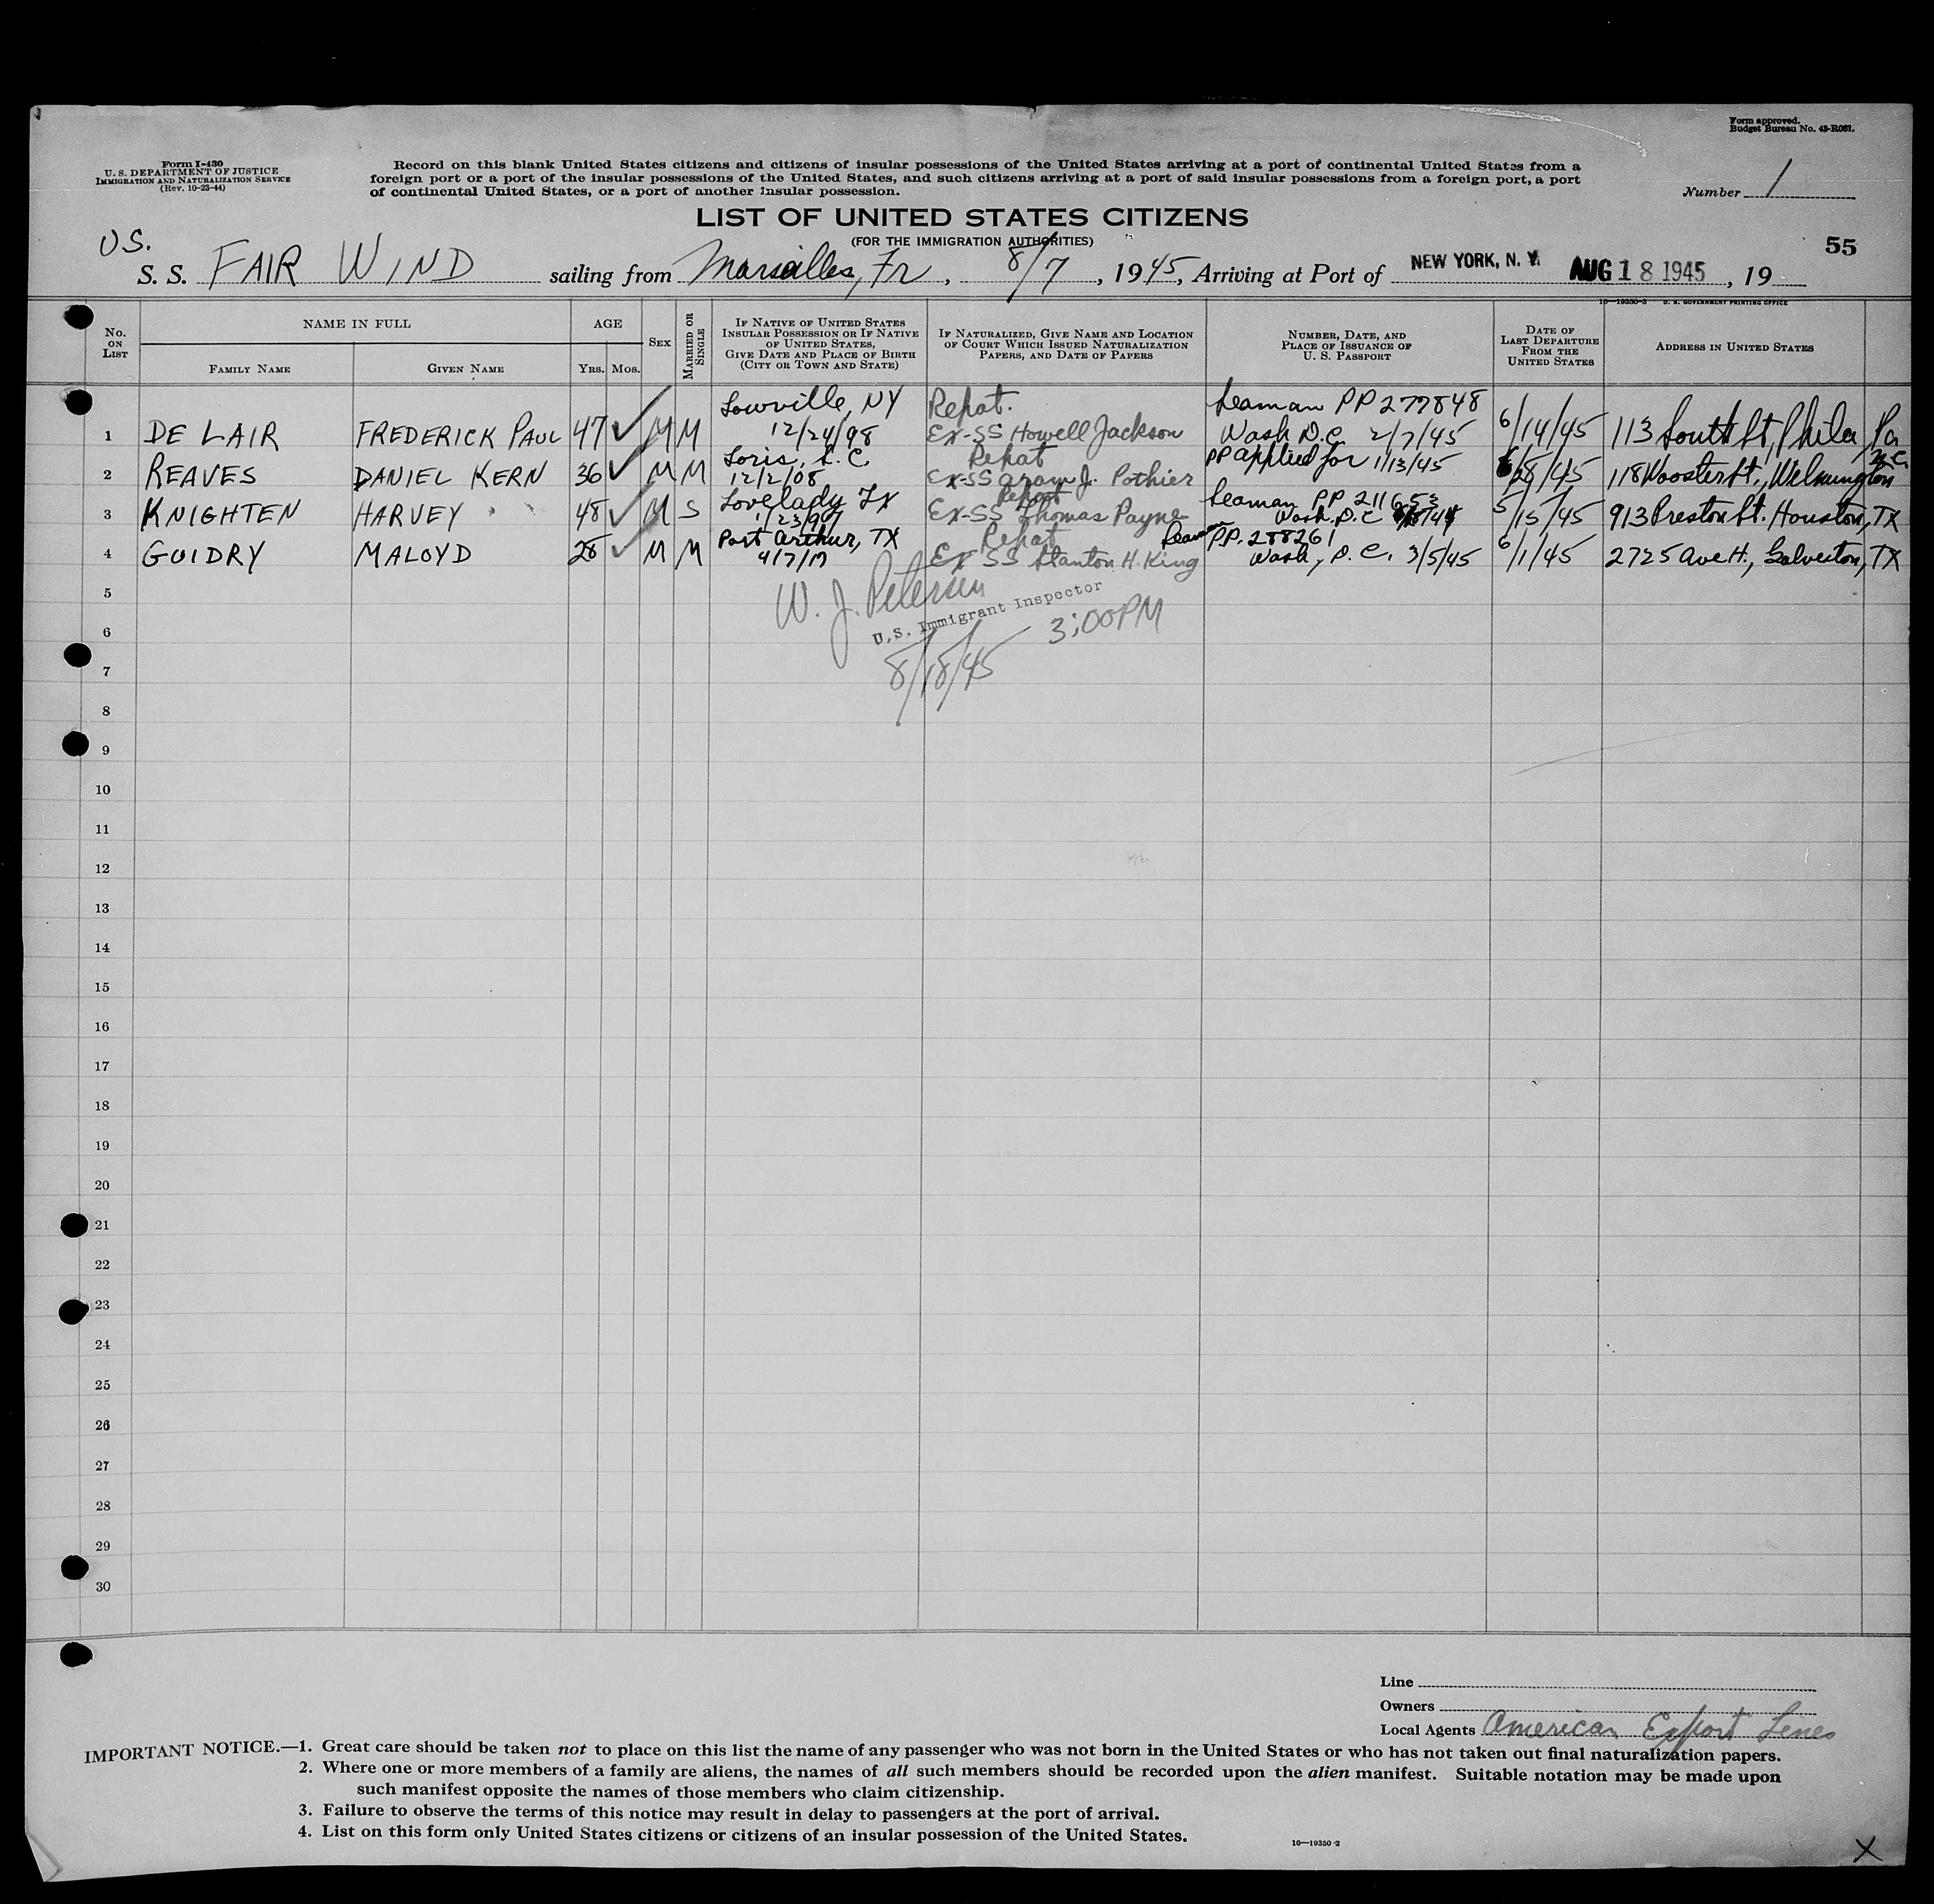 Form approved.
Budget Bureau No. 43-R081.
Form I-430
U. S. DEPARTMENT OF JUSTICE
IMMIGRATION AND NATURALIZATION SERVICE
(Rev. 10-23-44)
Record on this blank United States citizens and citizens of insular possessions of the United States arriving at a port of continental United States from a
foreign port or a port of the insular possessions of the United States, and such citizens arriving at a port of said insular possessions from a foreign port, a port
of continental United States, or a port of another insular possession.
Number 1
LIST OF UNITED STATES CITIZENS
(FOR THE IMMIGRATION AUTHORITIES)
55
US.
S. S. FAIR WIND sailing from Marseilles, Fr, 8/7, 1945, Arriving at Port of NEW YORK, N. Y. AUG 18 1945, 19
16—19350-3 U. S. GOVERNMENT PRINTING OFFICE
No. ON LIST
NAME IN FULL
FAMILY NAME
GIVEN NAME
AGE
YRS. MOS.
SEX
MARRIED OR SINGLE
IF NATIVE OF UNITED STATES INSULAR POSSESSION OR IF NATIVE OF UNITED STATES, GIVE DATE AND PLACE OF BIRTH (CITY OR TOWN AND STATE)
IF NATURALIZED, GIVE NAME AND LOCATION OF COURT WHICH ISSUED NATURALIZATION PAPERS, AND DATE OF PAPERS
NUMBER, DATE, AND PLACE OF ISSUANCE OF U. S. PASSPORT
DATE OF LAST DEPARTURE FROM THE UNITED STATES
ADDRESS IN UNITED STATES
Lowville, NY Repat. Seaman PP 277848
1 DE LAIR FREDERICK PAUL 47 ✓ M M 12/24/98 Ex-SS Howell Jackson Wash D.C. 2/7/45 6/14/45 113 South St, Phila, Pa
Loris, S.C. Repat PP applied for 1/13/45 N.C.
2 REAVES DANIEL KERN 36 ✓ M M 12/2/08 Ex-SS Aram J. Pothier 28/45 118 Wooster St., Wilmington
Lovelady Tx Repat Seaman PP 211653
3 KNIGHTEN HARVEY 48 ✓ M S 1/23/97 Ex-SS Thomas Payne Wash. D.C 5/15/45 913 Preston St. Houston, TX
Port Arthur, TX Repat Seaman PP. 288261
4 GUIDRY MALOYD 28 ✓ M M 4/7/17 Ex SS Stanton H. King Wash, D.C. 3/5/45 6/1/45 2725 Ave H., Galveston, TX
5
W. J. Petersen
U.S. Immigrant Inspector
6
3:00PM
7
8/18/45
8
9
10
11
12
13
14
15
16
17
18
19
20
21
22
23
24
25
26
27
28
29
30
Line
Owners
Local Agents American Export Lines
IMPORTANT NOTICE.—1. Great care should be taken not to place on this list the name of any passenger who was not born in the United States or who has not taken out final naturalization papers.
2. Where one or more members of a family are aliens, the names of all such members should be recorded upon the alien manifest. Suitable notation may be made upon
such manifest opposite the names of those members who claim citizenship.
3. Failure to observe the terms of this notice may result in delay to passengers at the port of arrival.
4. List on this form only United States citizens or citizens of an insular possession of the United States.
16—19350-2
X